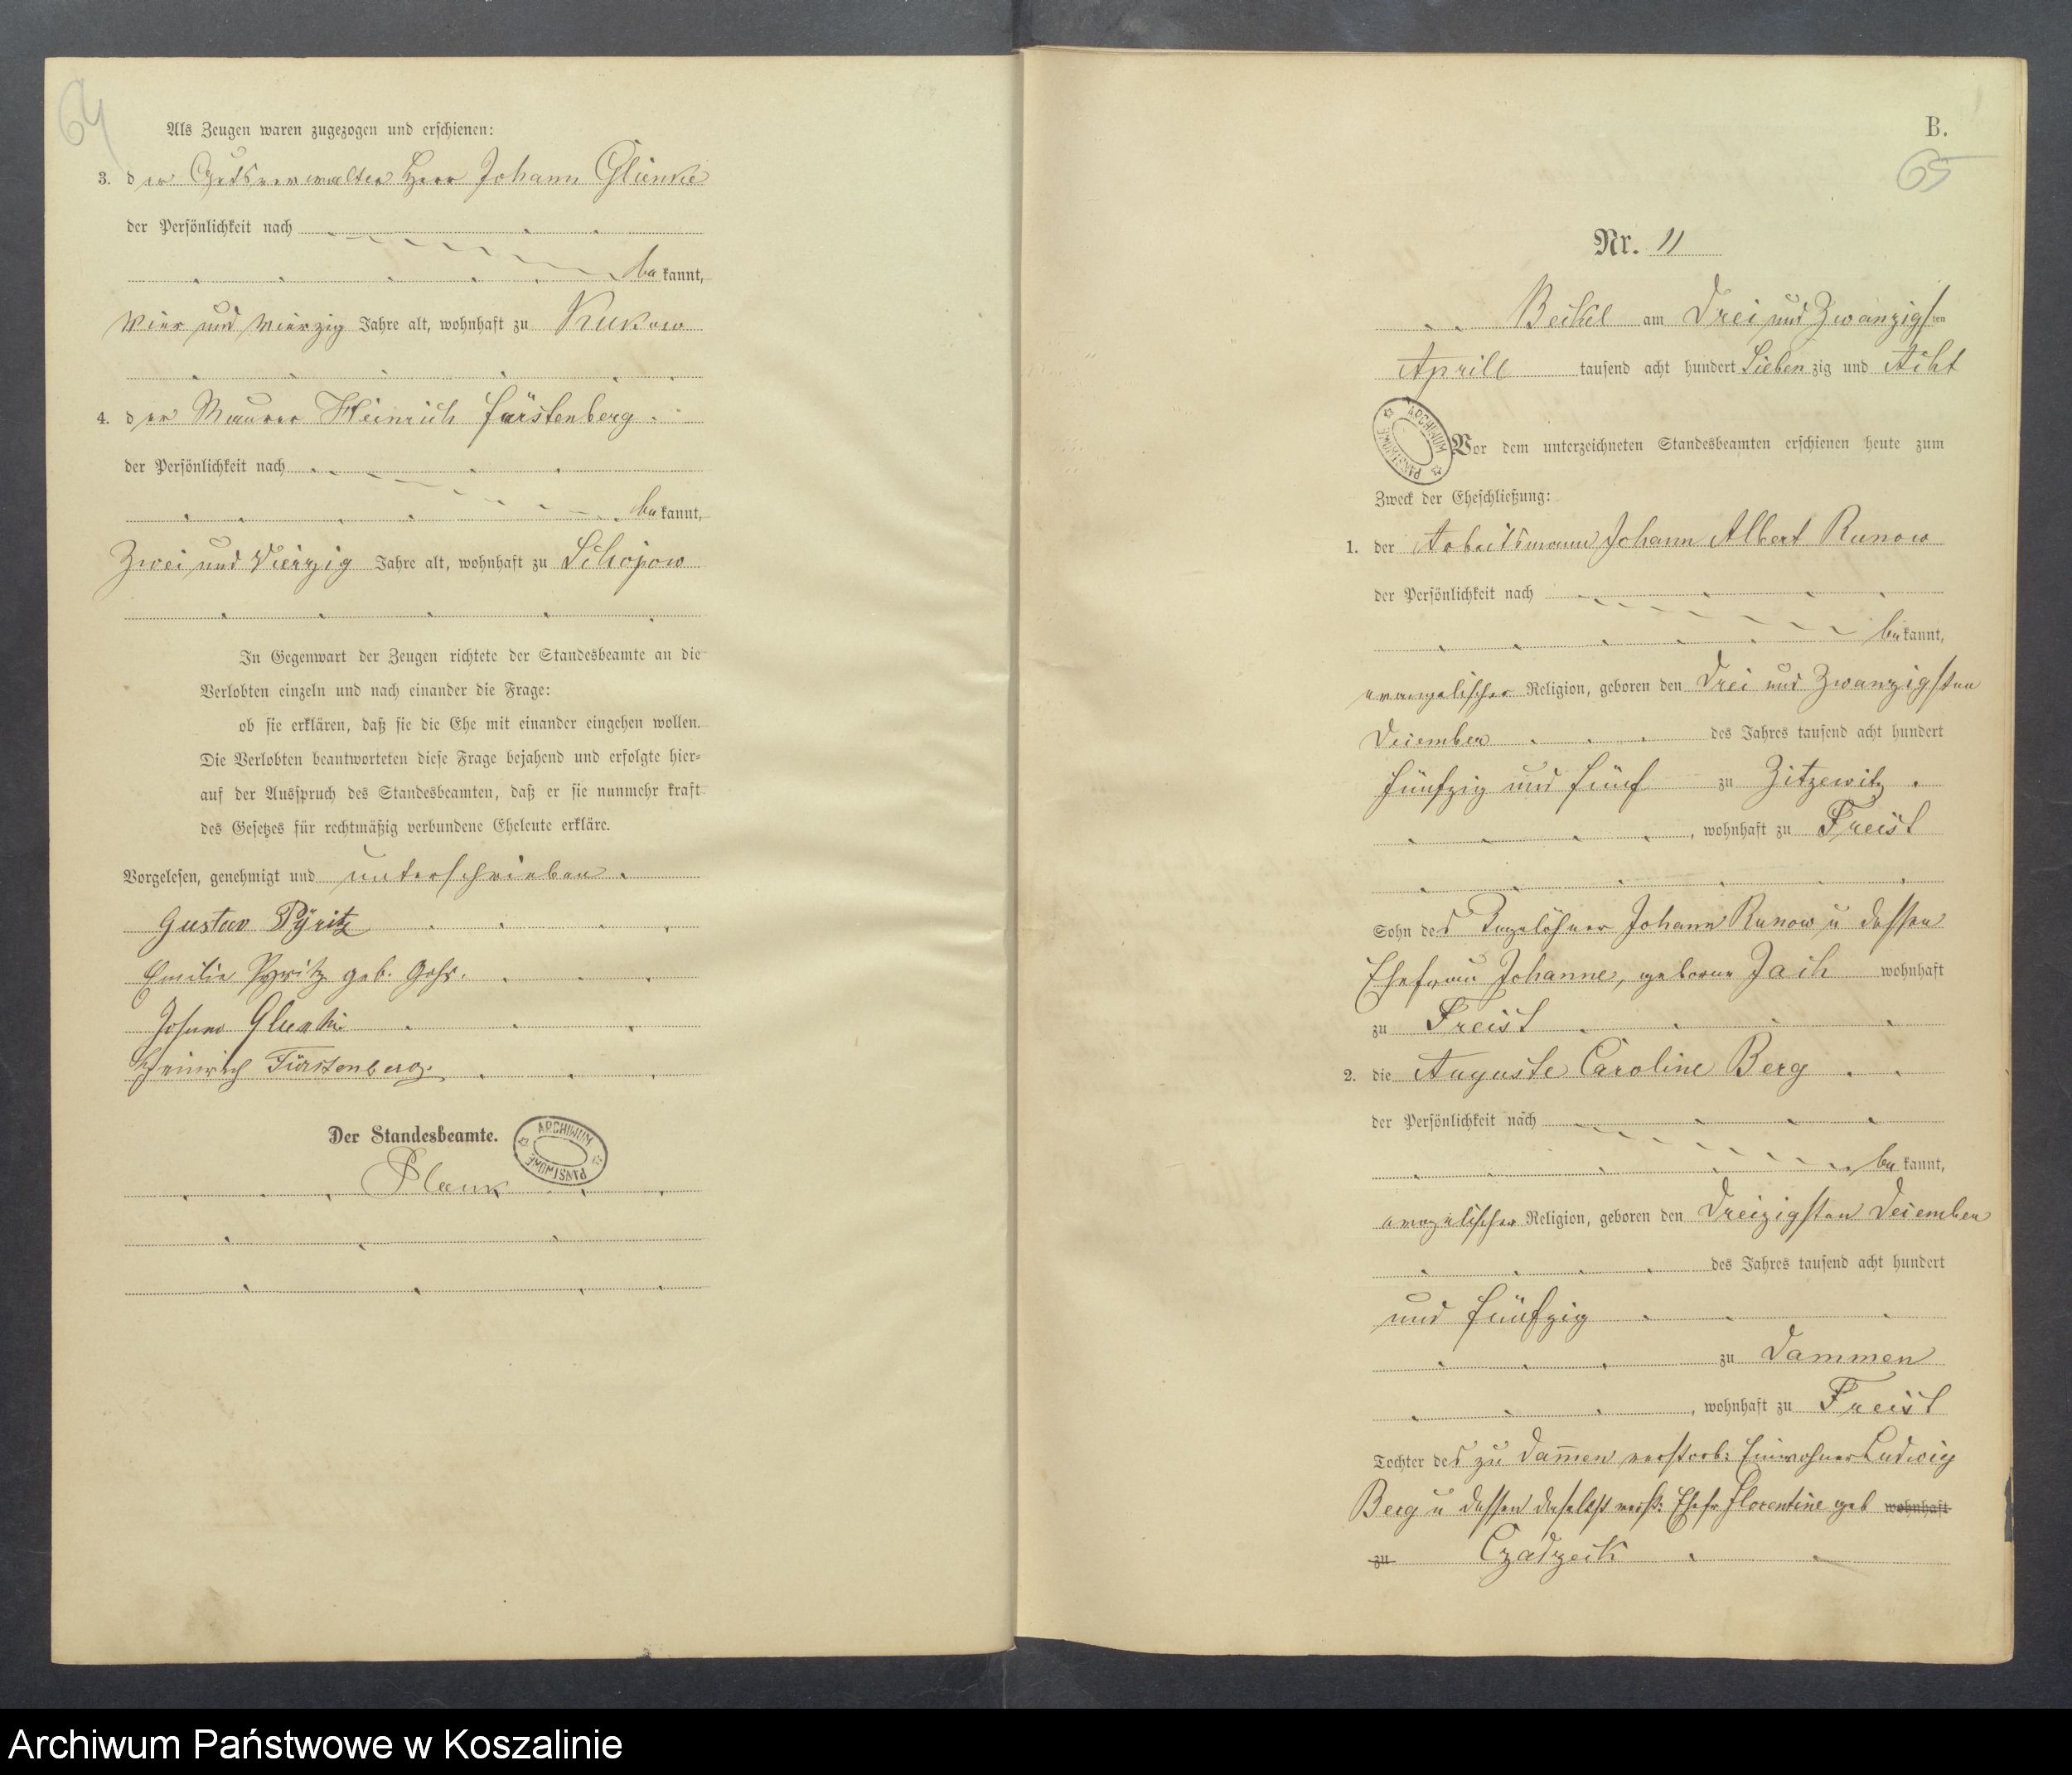 64
Als Zeugen waren zugezogen und erschienen:
3. der Gutsverwalter Herr Johann Glienke
der Persönlichkeit nach
bekannt,
vier und vierzig Jahre alt, wohnhaft zu Kukow
4. der Maurer Heinrich Fürstenberg.
der Persönlichkeit nach
bekannt,
Zwei und Vierzig Jahre alt, wohnhaft zu Schojow
In Gegenwart der Zeugen richtete der Standesbeamte an die
Verlobten einzeln und nach einander die Frage:
ob sie erklären, daß sie die Ehe mit einander eingehen wollen.
Die Verlobten beantworteten diese Frage bejahend und erfolgte hier-
auf der Ausspruch des Standesbeamten, daß er sie nunmehr kraft
des Gesetzes für rechtmäßig verbundene Eheleute erkläre.
Vorgelesen, genehmigt und unterschrieben.
Gustav Pyritz
Emilie Pyritz geb. Gohr.
Johann Glienke
Heinrich Fürstenberg.
Der Standesbeamte.
ARCHIWUM PAŃSTWOWE
Plank
B.
65
Nr. 11
Beckel am Drei und Zwanzigsten
Aprill tausend acht hundert Siebenzig und Acht
ARCHIWUM PAŃSTWOWE
Vor dem unterzeichneten Standesbeamten erschienen heute zum
Zweck der Eheschließung:
1. der Arbeitsmann Johann Albert Runow
der Persönlichkeit nach
bekannt,
evangelischer Religion, geboren den Drei und Zwanzigsten
December des Jahres tausend acht hundert
fünfzig und fünf zu Zitzewitz.
, wohnhaft zu Freist
Sohn des Tagelöhner Johann Runow u dessen
Ehefrau Johanne, geborne Jach wohnhaft
zu Freist
2. die Auguste Caroline Berg
der Persönlichkeit nach
bekannt,
evangelischer Religion, geboren den Dreizigsten December
des Jahres tausend acht hundert
und fünfzig
zu Dammen
, wohnhaft zu Freist
Tochter des zu Dam̄en verstorb: Einwohner Ludwig
Berg u dessen daselbst verst: Ehefr Florentine geb wohnhaft
zu Czadzeck
Archiwum Państwowe w Koszalinie